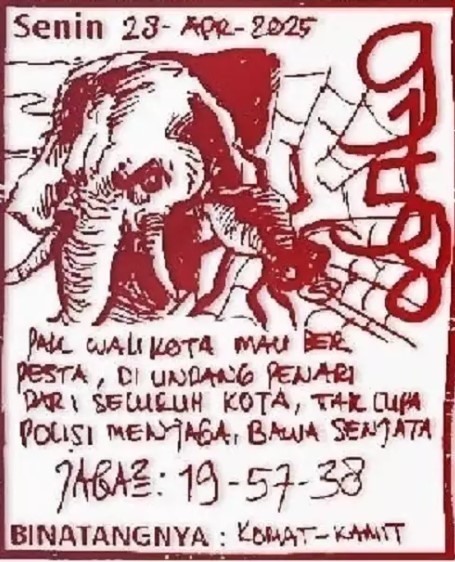 Senin 28-APR-2025
PAK WALIKOTA MAU BER
PESTA, DI UNDANG PENARI
DARI SELURUH KOTA, TAK LUPA
POLISI MENJAGA, BAWA SENJATA
JAGA2: 19-57-38
BINATANGNYA : KOMAT-KAMIT